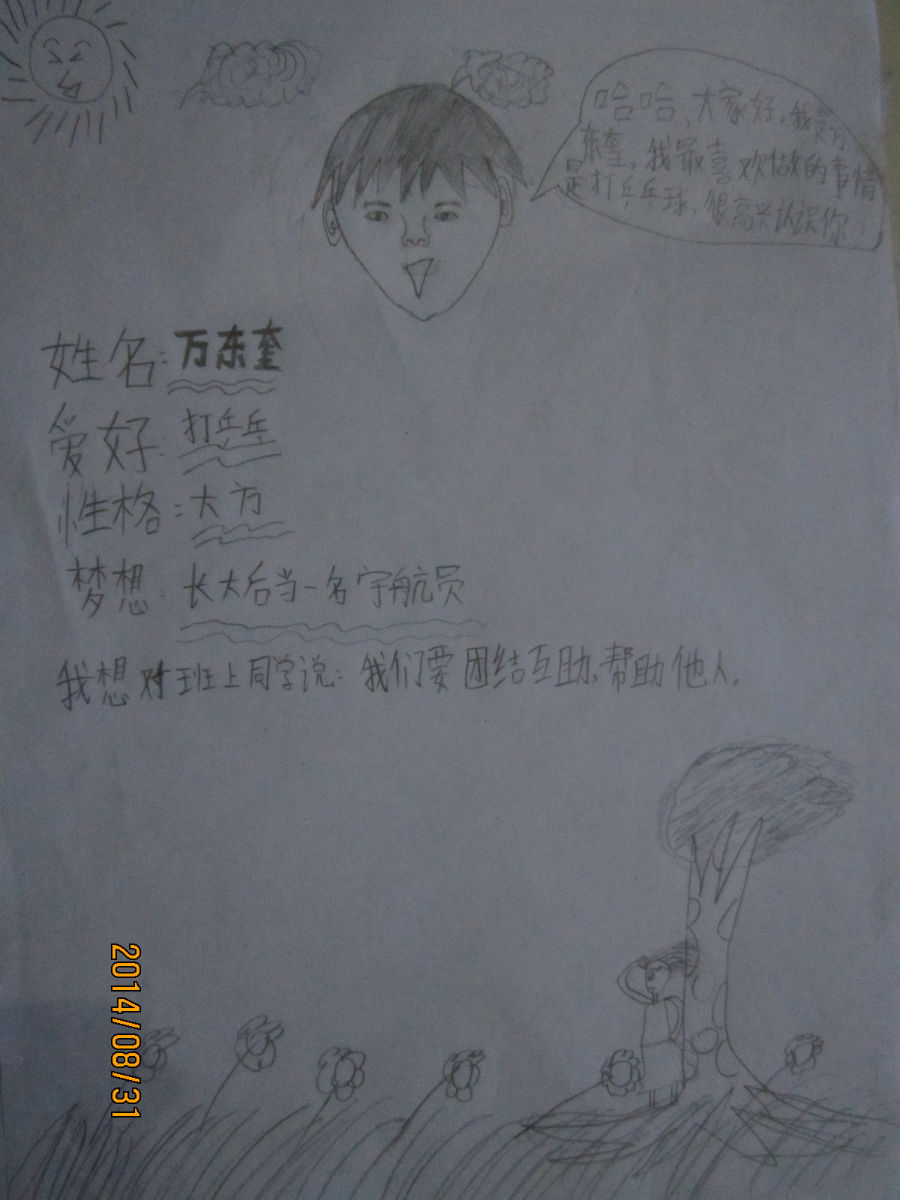 哈哈,大家好,我是万
东奎,我最喜欢做的事情
是打乒乓球,很高兴认识你
姓名:万东奎
爱好:打乒乓
性格:大方
梦想:长大后当一名宇航员
我想对班上同学说:我们要团结互助,帮助他人.
2014/08/31